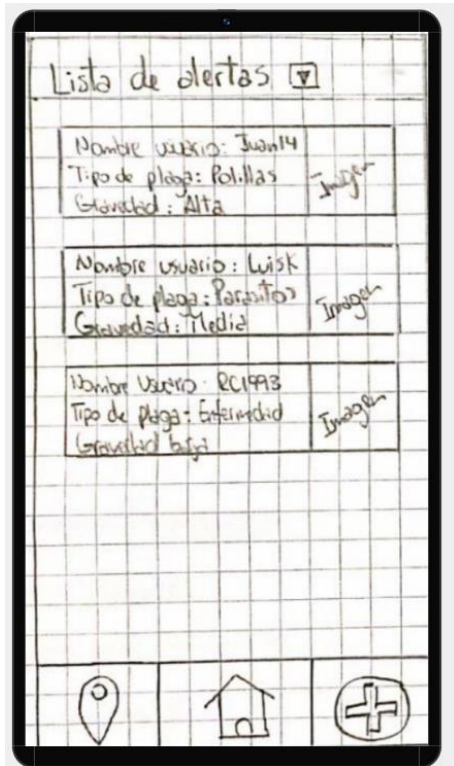 Lista de alertas
Nombre usuario: Juan14
Tipo de plaga: Polillas
Gravedad: Alta
Imagen
Nombre usuario: Luisk
Tipo de plaga: Parasitos
Gravedad: Media
Imagen
Nombre Usuario: RC1993
Tipo de plaga: Enfermedad
Gravedad baja
Imagen